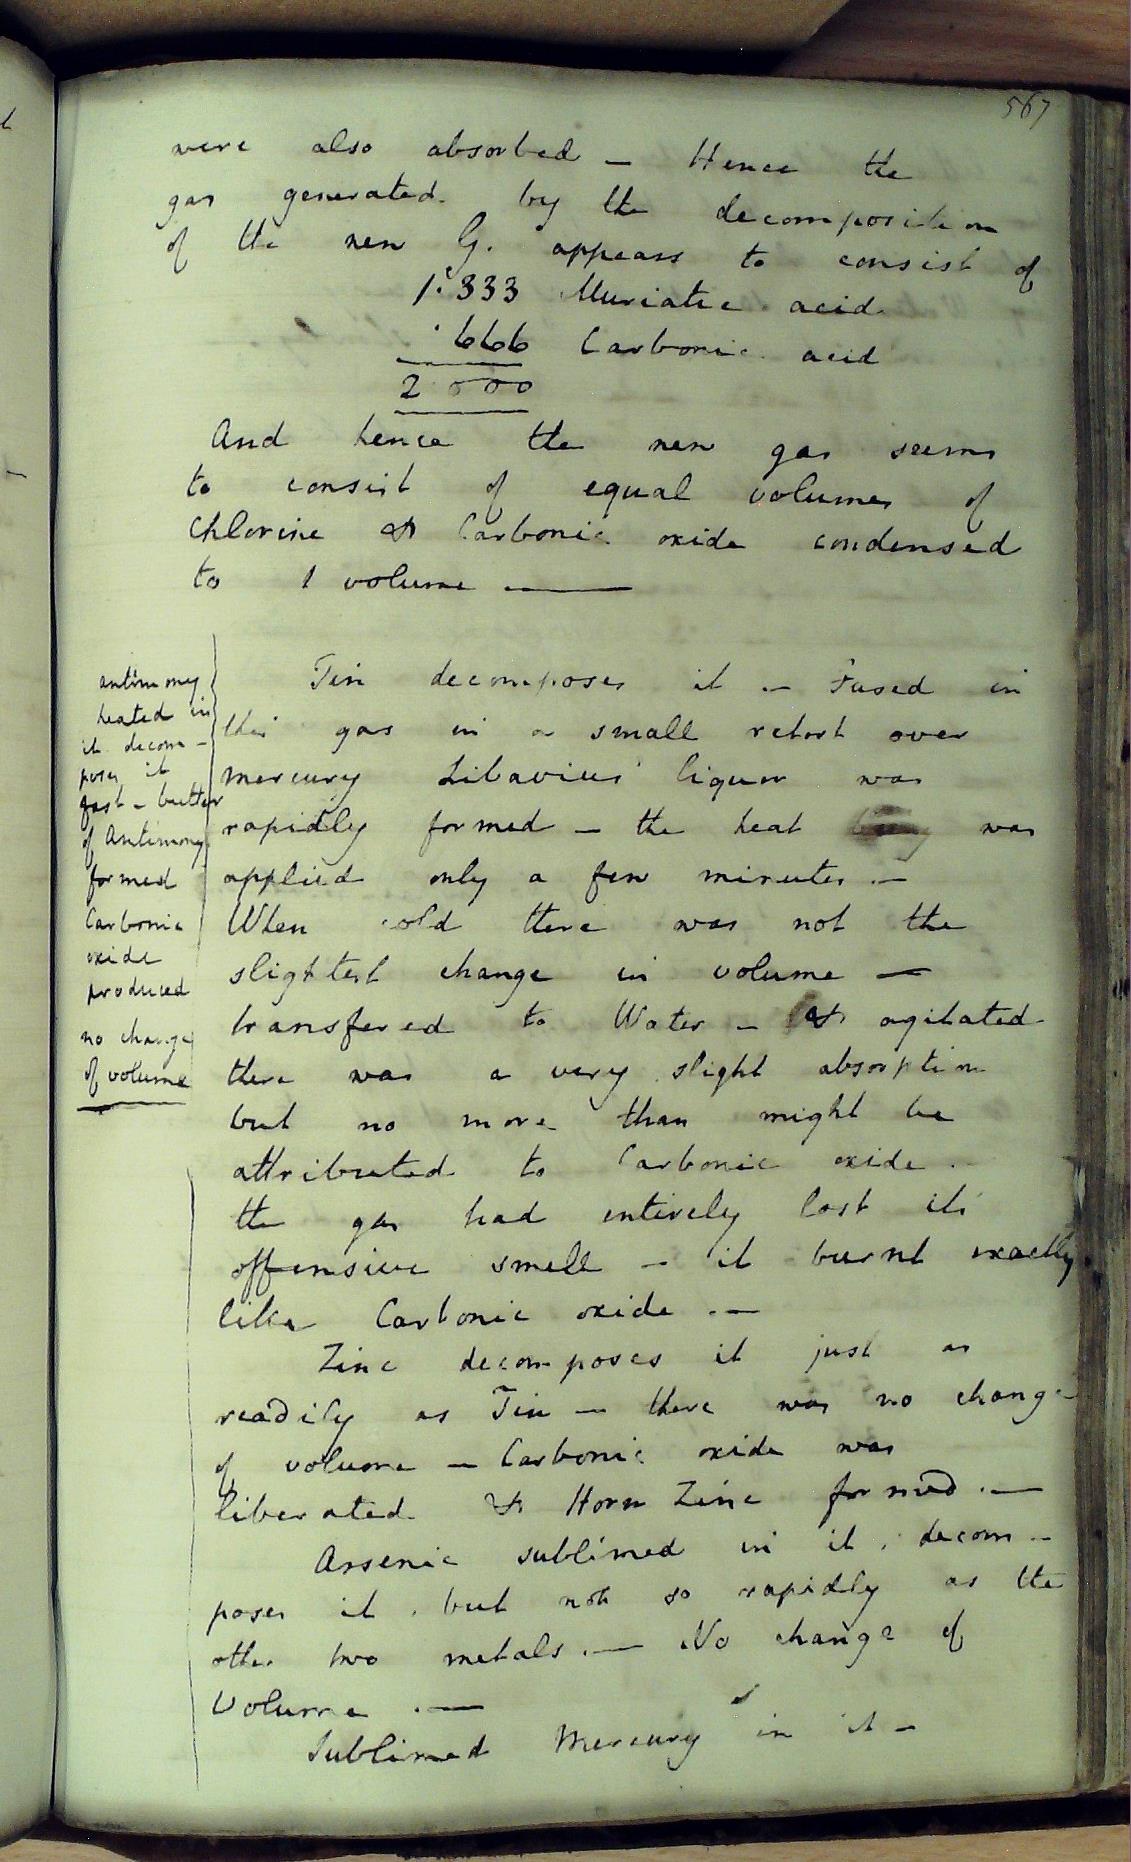 567
were also absorbed – Hence the
gas generated by the decomposition
of the new G. appears to consist of
1.333 Muriatic acid
.666 Carbonic acid
2 000
And hence the new gas seems
to consist of equal volumes of
Chlorine & Carbonic oxide condensed
to 1 volume —
Tin decomposes it – Fused in
this gas in a small retort over
mercury Libavius' liquor was
rapidly formed – the heat was
applied only a few minutes. –
When cold there was not the
slightest change in volume –
transfered to Water – & agitated
there was a very slight absorption
but no more than might be
attributed to Carbonic oxide.
the gas had entirely lost its
offensive smell – it burnt exactly
like Carbonic oxide. –
Zinc decomposes it just as
readily as Tin – there was no change
of volume – Carbonic oxide was
liberated & Horn Zinc formed. –
Arsenic sublimed in it, decom-
poses it, but not so rapidly as the
other two metals. – No change of
Volume. –
Sublimed Mercury in it –
antimony
heated in
it decom-
poses it
fast – butter
of Antimony
formed
Carbonic
oxide
produced
no change
of volume